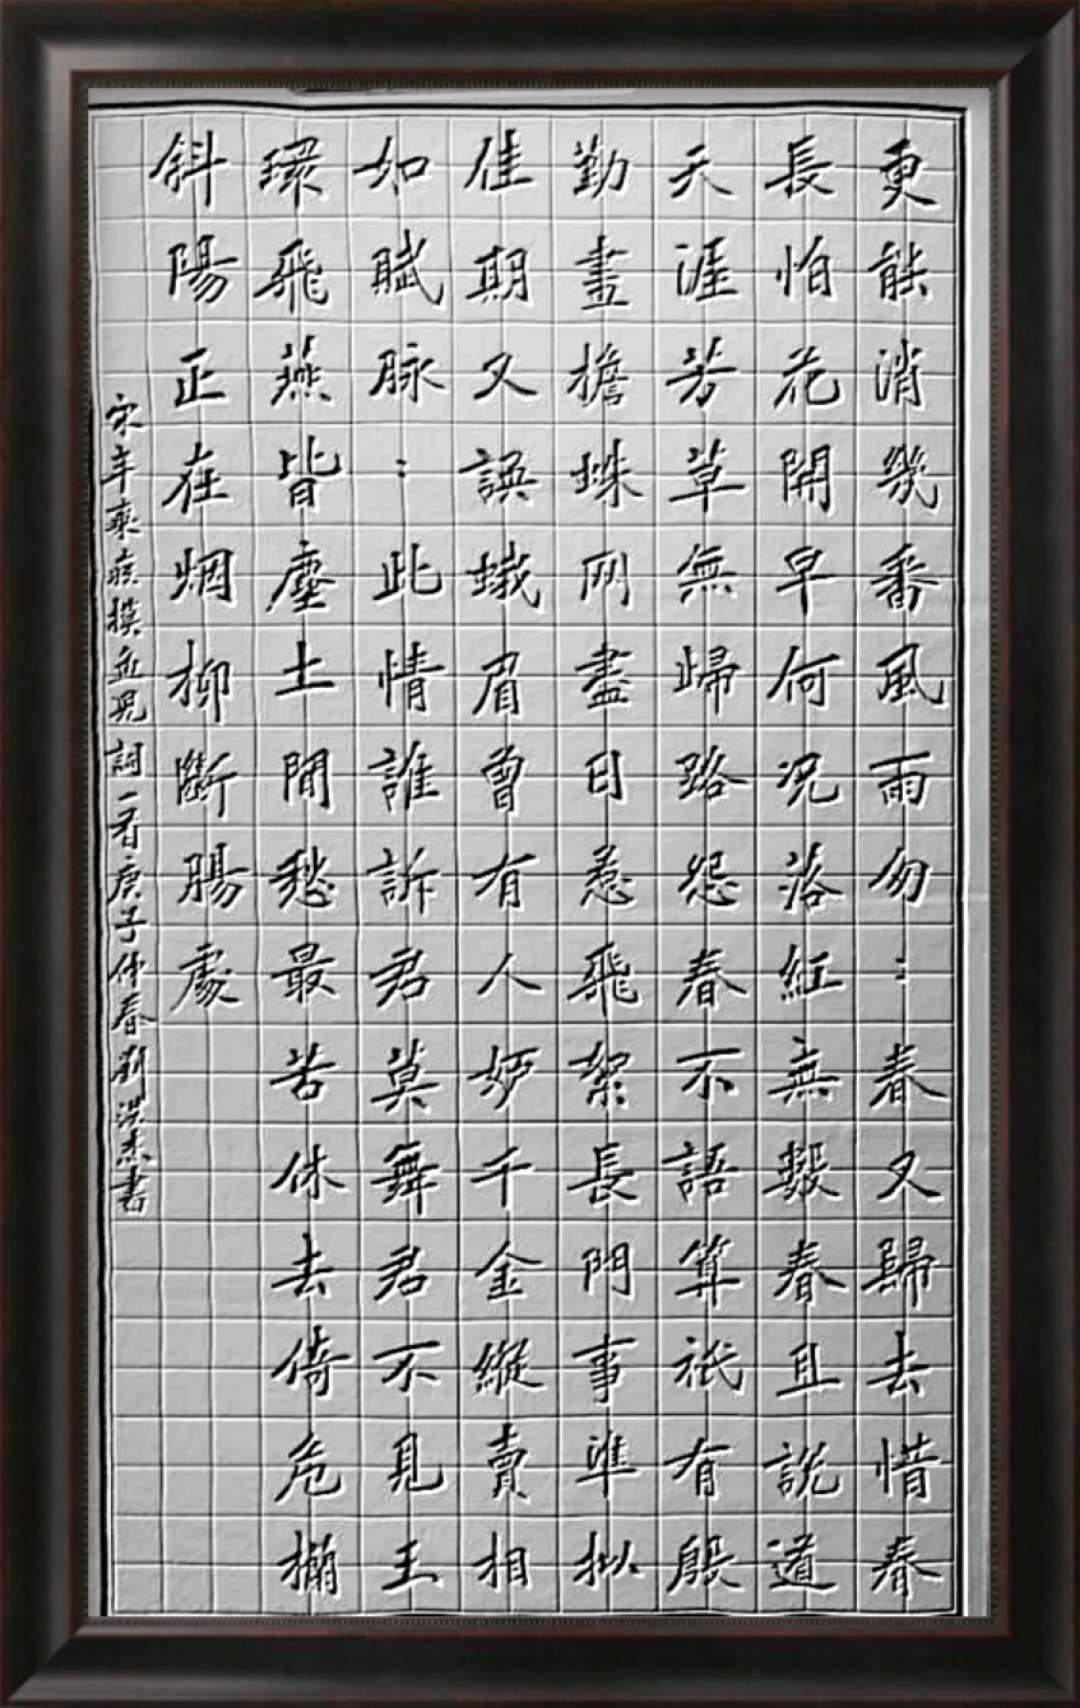 更能消幾番風雨勿：春又歸去惜春
長怕花開早何況落紅無數春且說道
天涯芳草無歸路怨春不語算祇有殷
勤畫檐蛛网盡日惹飛絮長門事準拟
佳期又誤蛾眉曾有人妒千金縱賣相
如賦脉：此情誰訴君莫舞君不見玉
環飛燕皆塵土閒愁最苦休去倚危欄
斜陽正在烟柳斷腸處
宋辛棄疾摸鱼兒詞一首庚子仲春劉洪杰書